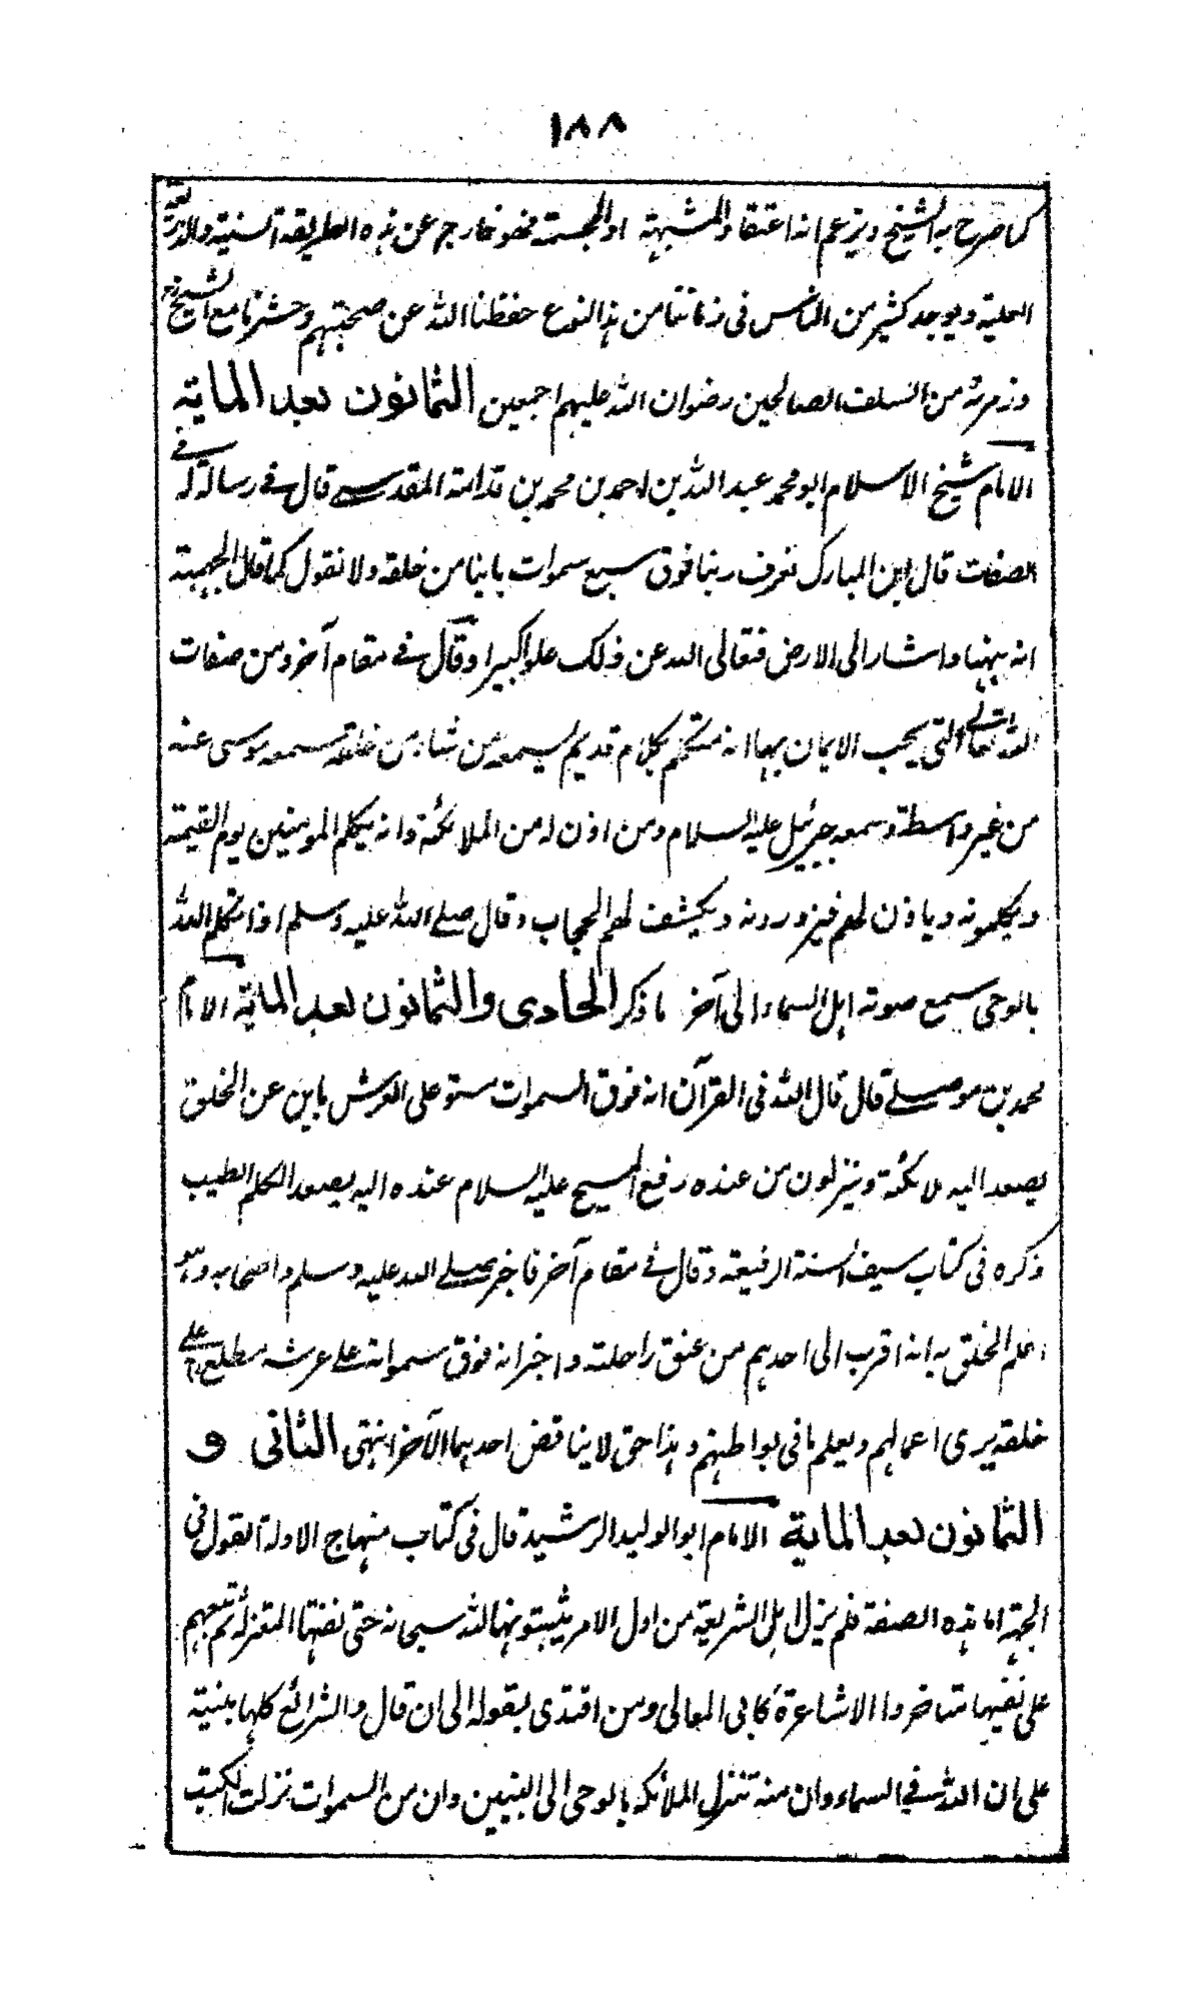 ١٨٨
كما صرح به الشيخ ويزعم انه اعتقاد المشبهة او المجسمة فهو خارج عن هذه الطريقة السنية والذريعة
العلية ويوجد كثير من الناس فى زماننا من هذا النوع حفظنا الله عن صحبتهم وحشرنا مع الشيخ
وزمرته من السلف الصالحين رضوان الله عليهم اجمعين الثمانون بعد الماية
الامام شيخ الاسلام ابو محمد عبد الله بن احمد بن محمد بن قدامة المقدسے قال فے رسالة له فے
الصفات قال ابن المبارك نعرف ربنا فوق سبع سموات باينا من خلقه ولا نقول كما قال الجهمية
انه ههنا واشار الى الارض فتعالى الله عن ذلك علوا كبيرا وقال فے مقام آخر ومن صفات
الله تعالى التى يجب الايمان بها انه متكلم بكلام قديم يسمعه من شاء من خلقه سمعه موسى عنه
من غير واسطة وسمعه جبرئيل عليه السلام ومن اذن له من الملائكة وانه يكلم المومنين يوم القيمة
ويكلمونه وياذن لهم فيزورونه ويكشف لهم الحجاب وقال صلے الله عليه وسلم اذا تكلم الله
بالوحى سمع صوته اهل السماء الى آخر ما ذكر الحادى والثمانون بعد الماية الامام
محمد بن موصلے قال قال الله فى القرآن انه فوق السموات مستو على العرش باين عن الخلق
يصعد اليه ملائكة وينزلون من عنده رفع المسيح عليه السلام عنده اليه يصعد الكلم الطيب
ذكره فى كتاب سيف السنة الرفيعة وقال فے مقام آخر فاخبر صلے الله عليه وسلم اصحابه وهو
اعلم الخلق به انه اقرب الى احدهم من عنق راحلته واخبر انه فوق سمواته علے عرشه مطلع علے
خلقه يرى اعمالهم ويعلم ما فى بواطنهم وهذا حق لا يناقض احدهما الآخر انتهى الثانى و
الثمانون بعد الماية الامام ابو الوليد الرشيد قال فى كتاب منهاج الادلة القول فى
الجهة اما هذه الصفة فلم يزل اهل الشريعة من اول الامر يثبتونها لله سبحانه حتى نفتها المعتزلة ثم تبعهم
على نفيها متاخروا الاشاعرة كابى المعالى ومن اقتدى بقوله الى ان قال والشرائع كلها مبنية
على ان الله فے السماء وان منه تتنزل الملائكة بالوحى الى النبيين وان من السموات نزلت الكتب